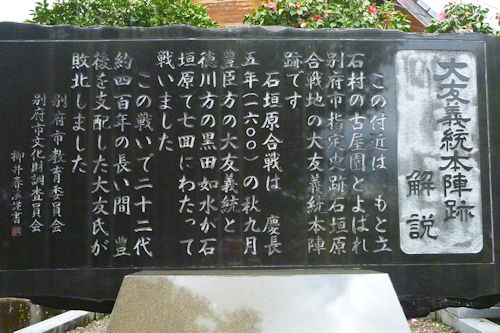 大友義統本陣跡
解説
この付近は もと立
石村の古屋園とよばれ
別府市指定史跡石垣原
合戦地の大友義統本陣
跡です
石垣原合戦は 慶長
五年(一六〇〇)の秋九月
豊臣方の大友義統と
徳川方の黒田如水が石
垣原で七回にわたって
戦いました
この戦いで二十二代
約四百年の長い間 豊
後を支配した大友氏が
敗北しました
別府市教育委員会
別府市文化財調査員会
柳井春渓書